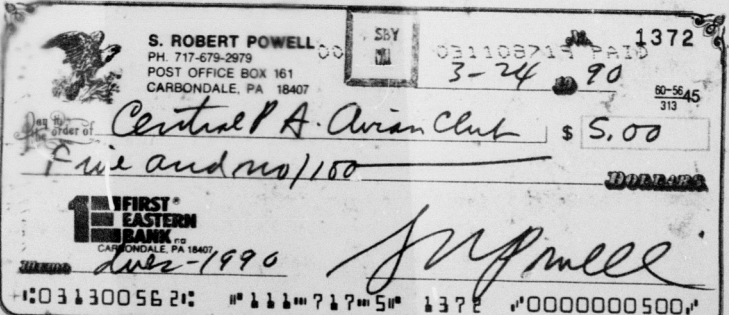 S. ROBERT POWELL
PH. 717-679-2979
POST OFFICE BOX 161
CARBONDALE, PA 18407
SBY
031108719 PAID
1372
3-24 1990
60-5645
313
Pay to the order of Central PA. Avian Club $ 5.00
Five and no/100 DOLLARS
1E FIRST EASTERN BANK n.a.
CARBONDALE, PA 18407
MEMO dues-1990 S R Powell
⑆031300562⑆ ⑈111⑉717⑉5⑈ 1372 ⑈0000000500⑈